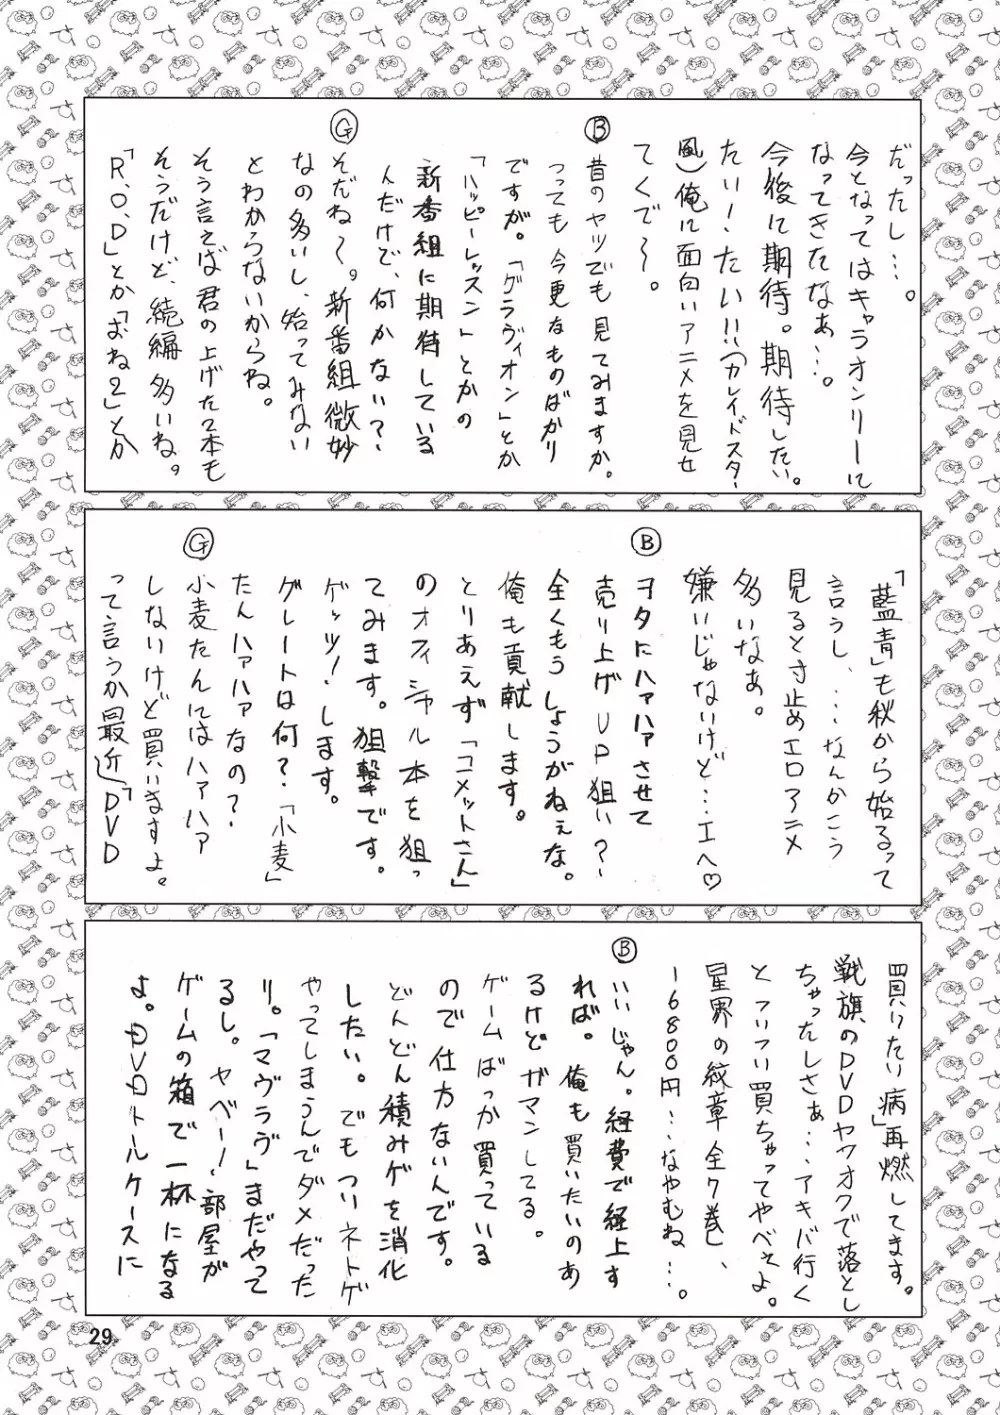 だったし…。
今となってはキャラオンリーに
なってきたなぁ…。
今後に期待。期待したい。
たい！たい!!（カレイドスター
風）俺に面白いアニメを見せ
てくで〜。
Ⓑ
昔のヤツでも見てみますか。
つっても今更なものばかり
ですが。「グラヴィオン」とか
「ハッピーレッスン」とかの
新番組に期待している
んだけど、何かない？
Ⓖ
そだね〜。新番組微妙
なの多いし、始ってみない
とわからないからね。
そう言えば君の上げた2本も
そうだけど、続編多いね。
「R.O.D」とか「おね2」とか
「藍青」も秋から始るって
言うし、…なんかこう
見ると寸止めエロアニメ
多いなぁ。
嫌いじゃないけど…エヘ♡
Ⓑ
ヲタにハァハァさせて
売り上げUP狙い？
全くもうしょうがねぇな。
俺も貢献します。
とりあえず「コメットさん」
のオフィシャル本を狙っ
てみます。狙撃です。
ゲッツ！します。
グレートは何？「小麦」
たんハァハァなの？
Ⓖ
小麦たんにはハァハァ
しないけど買いますよ。
って言うか最近「DVD
買いたい病」再燃してます。
戦旗のDVDヤフオクで落とし
ちゃったしさぁ…アキバ行く
とついつい買っちゃってやべぇよ。
星界の紋章全7巻、
−6800円…なやむね…。
Ⓑ
いいじゃん。経費で経上す
れば。俺も買いたいのあ
るけどガマンしてる。
ゲームばっか買っている
ので仕方ないんです。
どんどん積みゲを消化
したい。でもついネトゲ
やってしまうんでダメだった
り。「マヴラヴ」まだやって
るし。ヤベー！部屋が
ゲームの箱で一杯になる
よ。DVDトルケースに
29